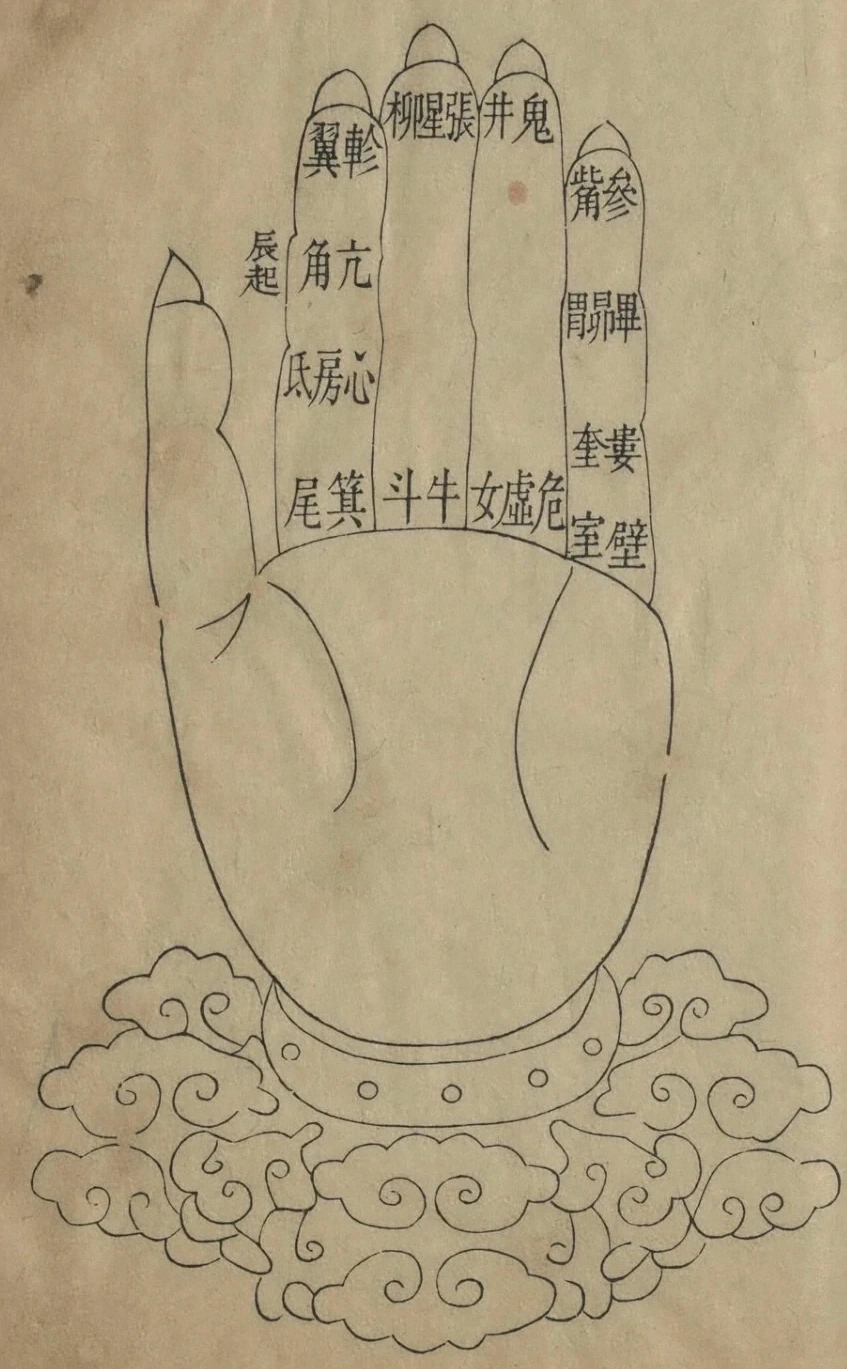 辰起
翼軫
角亢
氐房心
尾箕
柳星張
斗牛
井鬼
女虛危
觜參
胃昴畢
奎婁
室壁